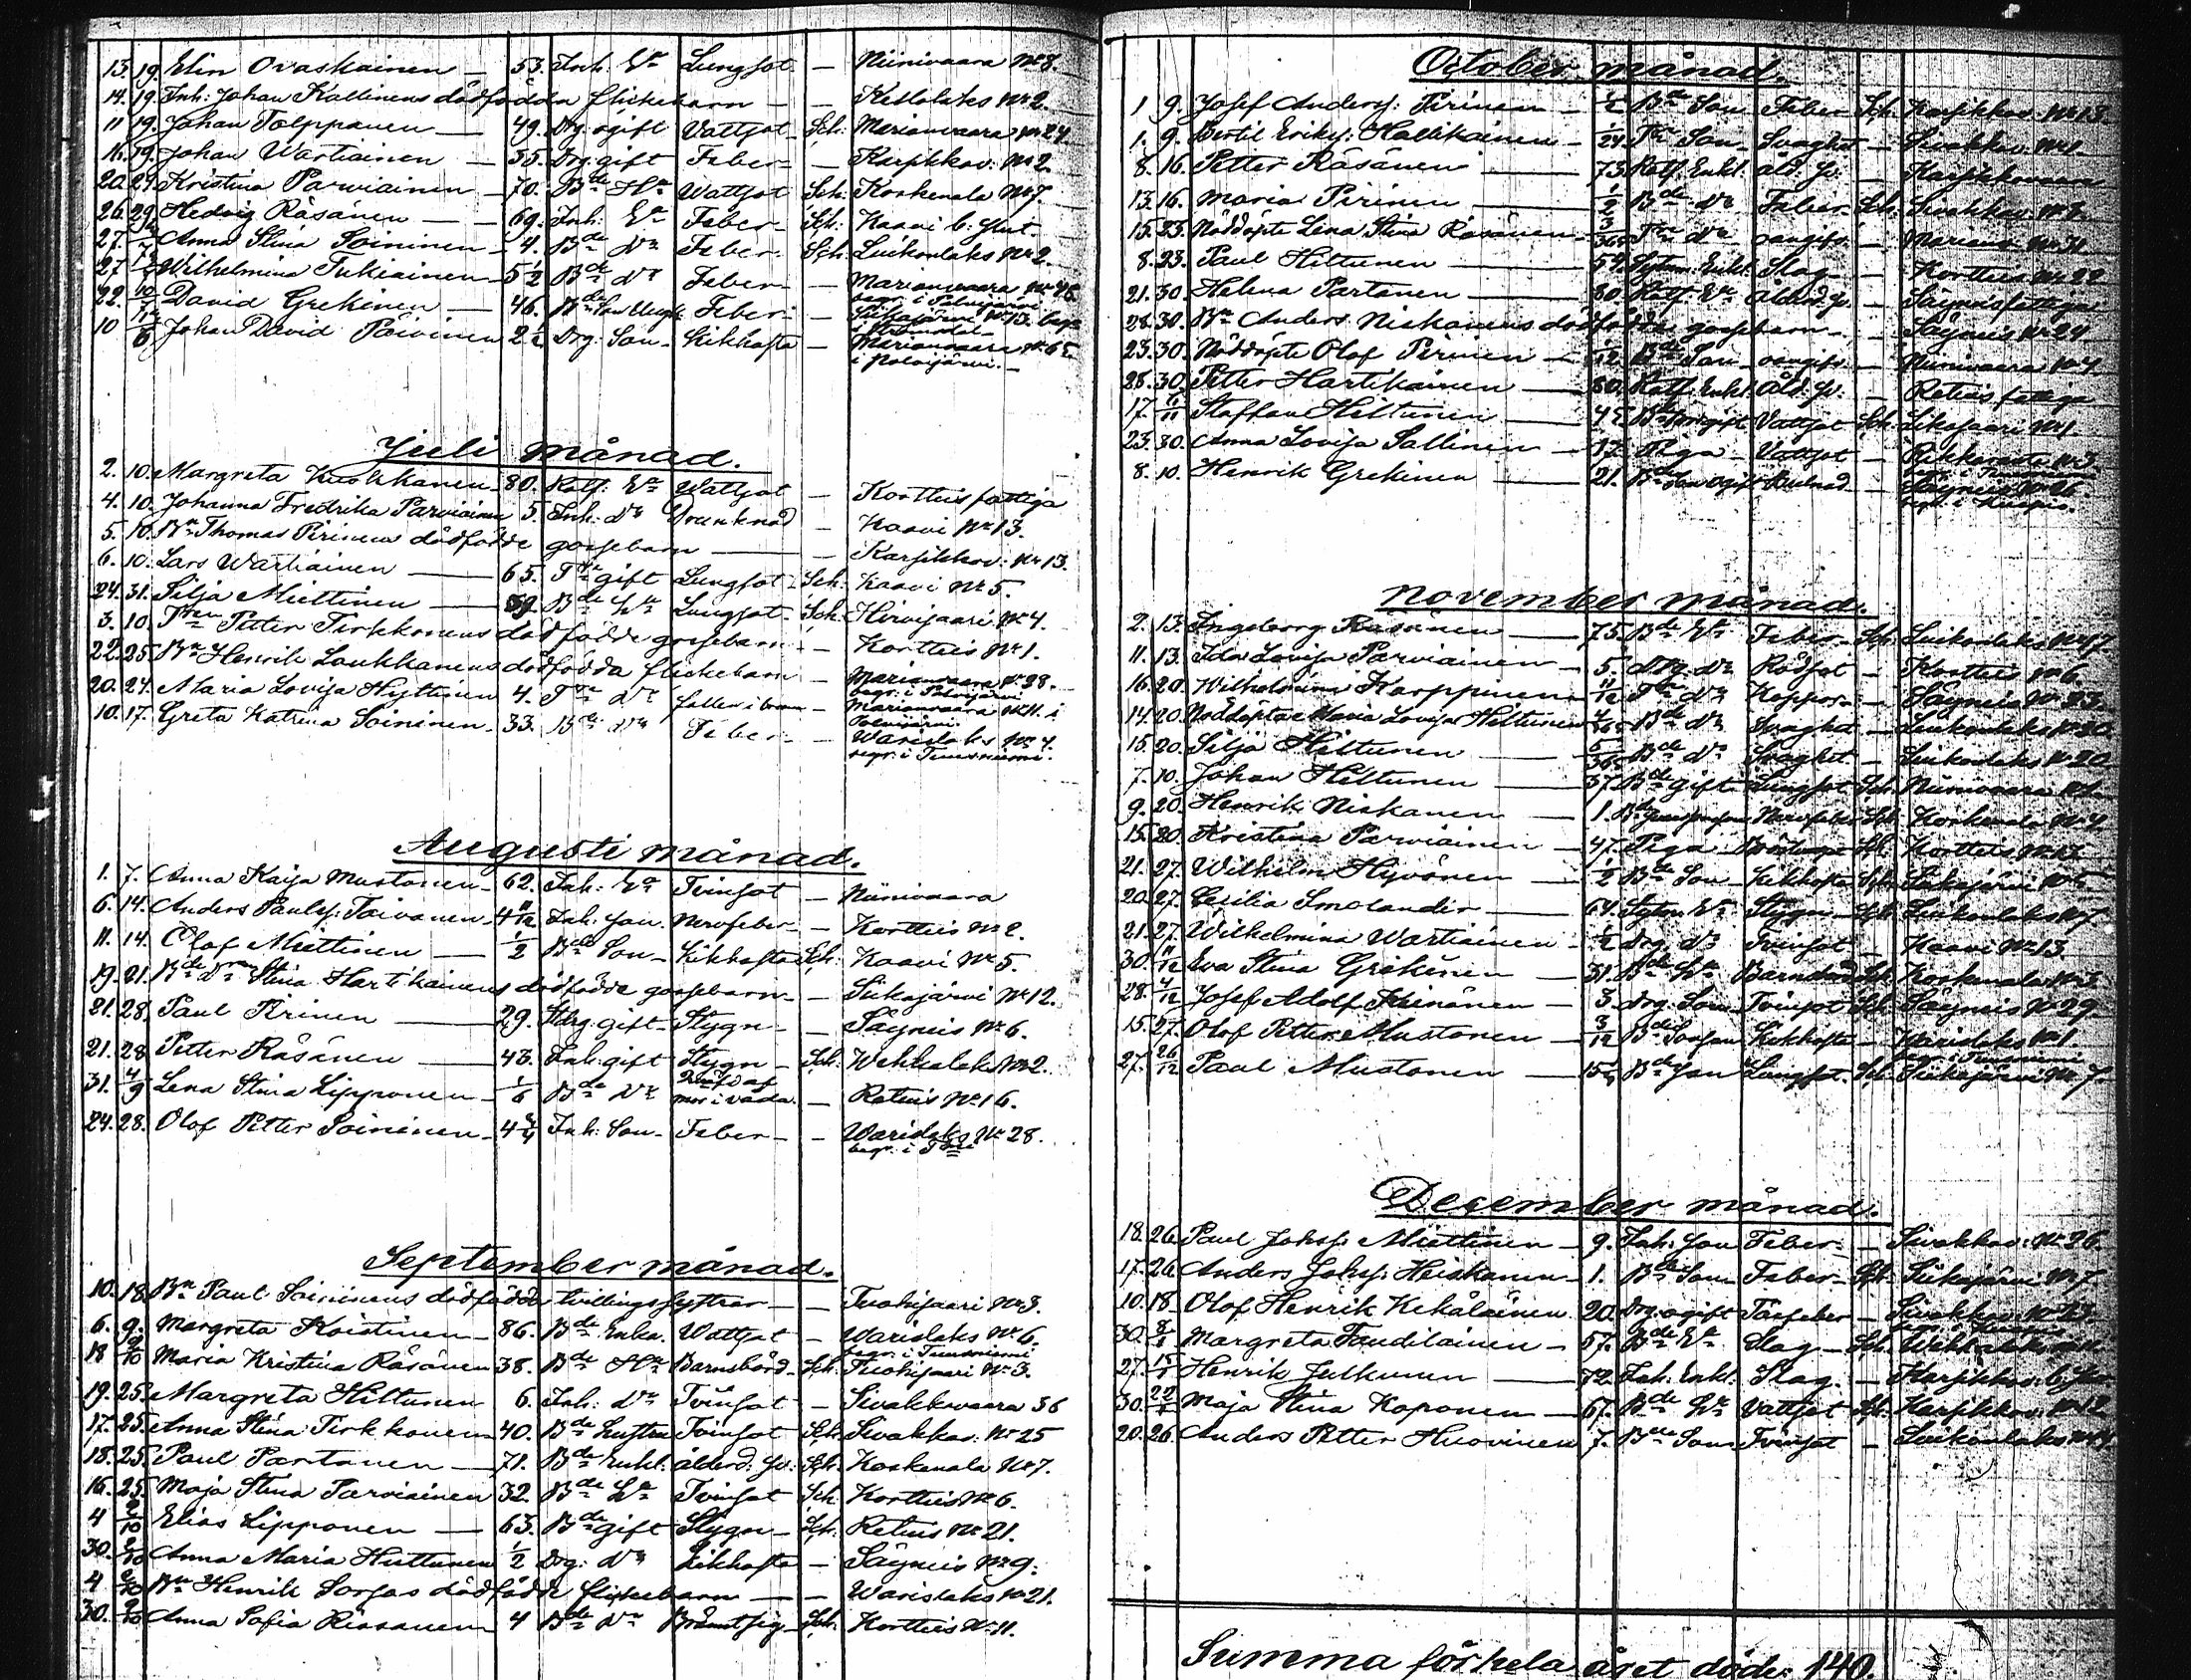 13. 19. Elin Ovaskainen — 53. Inh. Ea Lungsot — Niinivaara No 8.
14. 19. Inh: Johan Kallinens dödfödda flickebarn — — Ketlolaks No 2.
11 19. Johan Tolppanen — 49. Drg. ogift Vattsot Sch: Marianvaara No 24.
16. 19. Johan Wartiainen — 55. Drg. gift Feber — Karsikkov: No 2.
20. 29. Kristina Parviainen — 70. Bde Hu Wattsot Sch: Koskenala No 7.
26. 29. Hedvig Räsänen — 69. Inh: Ea Feber — Sch: Kaavi
27. Anna Stina Soininen — 4. Bde Dr Feber Sch. Luikonlaks No 2.
27. Wilhelmina Tukiainen — 5½ Bde Dr Feber — Marianvaara No 46.
begr: i Polvijärvi
22. 10/7 David Grekinen — 46. Bde Feber — Siikajärvi No 13. begr.
10 Johan David Päivinen 2½ Drg. Son Kikhosta — Marianvaara No 65.
i Polvijärvi. —
Juli månad.
2. 10. Margreta Kuokkanen 80. Rotf: Ea Wattsot — Kortteis fattiga
4. 10. Johanna Fredrika Parviainen 5. Inh: Dr Drunknad — Kaavi No 13.
5. 10. Bn Thomas Pirinens dödfödde gossebarn — — Karsikkov: No 13.
6. 10. Lars Wartiainen — 65. gift Lungsot Sch: Kaavi No 5.
24. 31. Silja Miettinen — 59. Bde Lungsot Sch. Hirvisaari No 4.
3. 10. Petter Tirkkonens dödfödde gossebarn — Kortteis No 1.
22. 25. Bn Henrik Laukkanens dödfödda flickebarn — Marianvaara No 38.
begr: i Polvijärvi
20. 24. Maria Lovisa Hyttinen 4. Dr — Marianvaara No 11. i
Polvijärvi
10. 17. Greta Katrina Soininen 33. Bde Dr Feber — Warislaks No 4.
begr: i Tuusniemi.
Augusti månad.
1. 7. Anna Kaisa Mustonen 62. Inh: Ea Tvinsot — Niinivaara
6. 14. Anders Paulss: Toivanen 4 11/12 Inh: Son Nervfeber — Kortteis No 2.
11. 14. Olof Miettinen — ½ Bde Son Kikhosta Sch: Kaavi No 5.
19. 21. Bde Drn Stina Hartikainens dödfödde gossebarn — Siikajärvi No 12.
21. 28. Paul Pirinen — 29. gift Stygn — Säyneis No 6.
21. 28. Petter Räsänen — 43. Inh: gift Stygn — Sch: Wehkalaks No 2.
31. 4/9 Lena Stina Lipponen — 1/6 Bde Dr Qväfd af
mor i våda — Retuis No 16.
24. 28. Olof Petter Soininen 4¾ Inh: Son Feber — Warislaks No 28.
begr: i Tmi
September månad.
10. 18. Bn Paul Soininens dödfödde tvillingssystrar — — Tuokisaari No 3.
6. 9. Margreta Koistinen — 86. Bde Enka. Wattsot — Warislaks No 6.
begr: i Tuusniemi
18 9/10 Maria Kristina Räsänen 38. Bde Hu Barnsbörd Sch. Tuokisaari No 3.
19. 25. Margreta Hiltunen 6. Inh: Dr Tvinsot — Sivakkavaara 36
17. 25. Anna Stina Tirkkonen 40. Bde Hustru Tvinsot Sch. Sivakkav: No 25
18. 25. Paul Partanen — 71. Bde Enkl. ålderd: sv: Sch: Koskenala No 7.
16. 25. Maja Stina Parviainen 32. Bde Tvinsot Sch. Kortteis No 6.
4 2/10 Elias Lipponen — 63. Bde gift Stygn Sch: Retuis No 21.
30. 9/10 Anna Maria Huttunen ½ Drg: Dr Kikhosta — Säyneis No 9.
4 Bn Henrik Sorsas dödfödde flickebarn — — Warislaks No 21.
30. 9/10 Anna Sofia Räsänen 4 Bde Dr Sch: Kortteis No 11.
October månad.
1 9. Josef Anderss: Pirinen — ½ Bde Son Feber Sch. Karsikkov: No 13.
1. 9. Bertil Erikss: Hallikainen — Son Svaghet — Sivakkav: No 1.
8. 16. Petter Räsänen — 73. Rotf. Enkl. åld. sv. — Karsikkovaara
13. 16. Maria Pirinen — ½ Bde Dr Feber Sch. Sivakkav. No 8.
15. 23. Nöddöpte Lena Stina Räsänen 3/365 Dr oangifv. —
8. 23. Paul Hiltunen — 59. Enkl. Slag — Kortteis No 22
21. 30. Helena Partanen — 80. Rotf. Ea Ålderd. sv. — Säyneis fattiga
28. 30. Bn Anders Niskanens dödfödde gossebarn — Säyneis No 24
23. 30. Nöddöpte Olof Pirinen — 1/12 Bde Son oangifv. — Niinivaara No 4
28. 30. Petter Hartikainen — 80. Rotf. Enkl. Åld. sv. — Retuis fattiga
17. 6/11 Staffan Hiltunen — ogift Vattsot Sch. Likosaari No 1.
23. 30. Anna Lovisa Sallinen — 17. Piga Vattsot —
8. 10. Henrik Grekinen — 21. Bde Son ogift — Säyneis No 26
November månad.
2. 13. Ingeborg Räsänen — 75. Bde Ea Feber Sch. Luikonlaks No 17
11. 13. Ida Lovisa Parviainen — 5. Drg. Dr Rödsot — Kortteis No 6.
16. 20. Wilhelmina Karppinen 11/12 Dr Koppor — Säyneis No 33.
14. 20. Nöddöpta Maria Lovisa Hiltunen Bde Dr Svaghet — Luikonlaks No 20
15. 20. Silja Hiltunen — Bde Dr Svaghet — Luikonlaks No 20
7. 10. Johan Hiltunen — 37. Bde gift Lungsot Sch. Niinivaara
9. 20. Henrik Niskanen — 1. Nervfeber Sch. Koskenala No 4
15. 20. Kristina Parviainen — 47. Piga Sch. Kortteis No 13
21. 27. Wilhelm Hyvönen — ½ Bde Son Kikhosta Sch. Siikajärvi No 5
20. 27. Cecilia Smolander — 64. Stygn Sch. Luikonlaks No 7.
21. 27. Wilhelmina Wartiainen — ½ Drg. Dr Tvinsot — Kaavi No 13.
30. 11/12 Eva Stina Grekinen — 31. Bde Barnsbörd Sch. Koskenala No 3
28. 4/12 Josef Adolf Keinänen — 3. Drg. Son Tvinsot Sch. Säyneis No 29
15. 27. Olof Petter Mustonen — 3/12 Bde Kikhosta — Warislaks No 1.
begr: i Tuusniemi
27. 26/12 Paul Mustonen — Bde Son Lungsot. Sch. Siikajärvi No 7.
December månad.
18. 26. Paul Johss: Miettinen — 9. Inh: Son Feber — Sivakkav: No 26.
17. 26. Anders Johss: Heiskanen — 1. Bde Son Feber Sch. Siikajärvi No 7.
10. 18. Olof Henrik Kekäläinen 20. Drg. ogift Tärfeber — Sivakkav. No 23.
30. 8/1 Margreta Tanditainen — 57. Bde Ea Slag Sch. Wehkalaks
27. 15/1 Henrik Julkunen — 72. Inh. Enkl. Slag. — Karsikkov:
30. 22/1 Maja Stina Koponen — 67. Bde Vattsot Sch. Karsikkov: No 12
20. 26. Anders Petter Huovinen 7. Bde Son Tvinsot — Luikonlaks
Summa för hela året döde: 140.